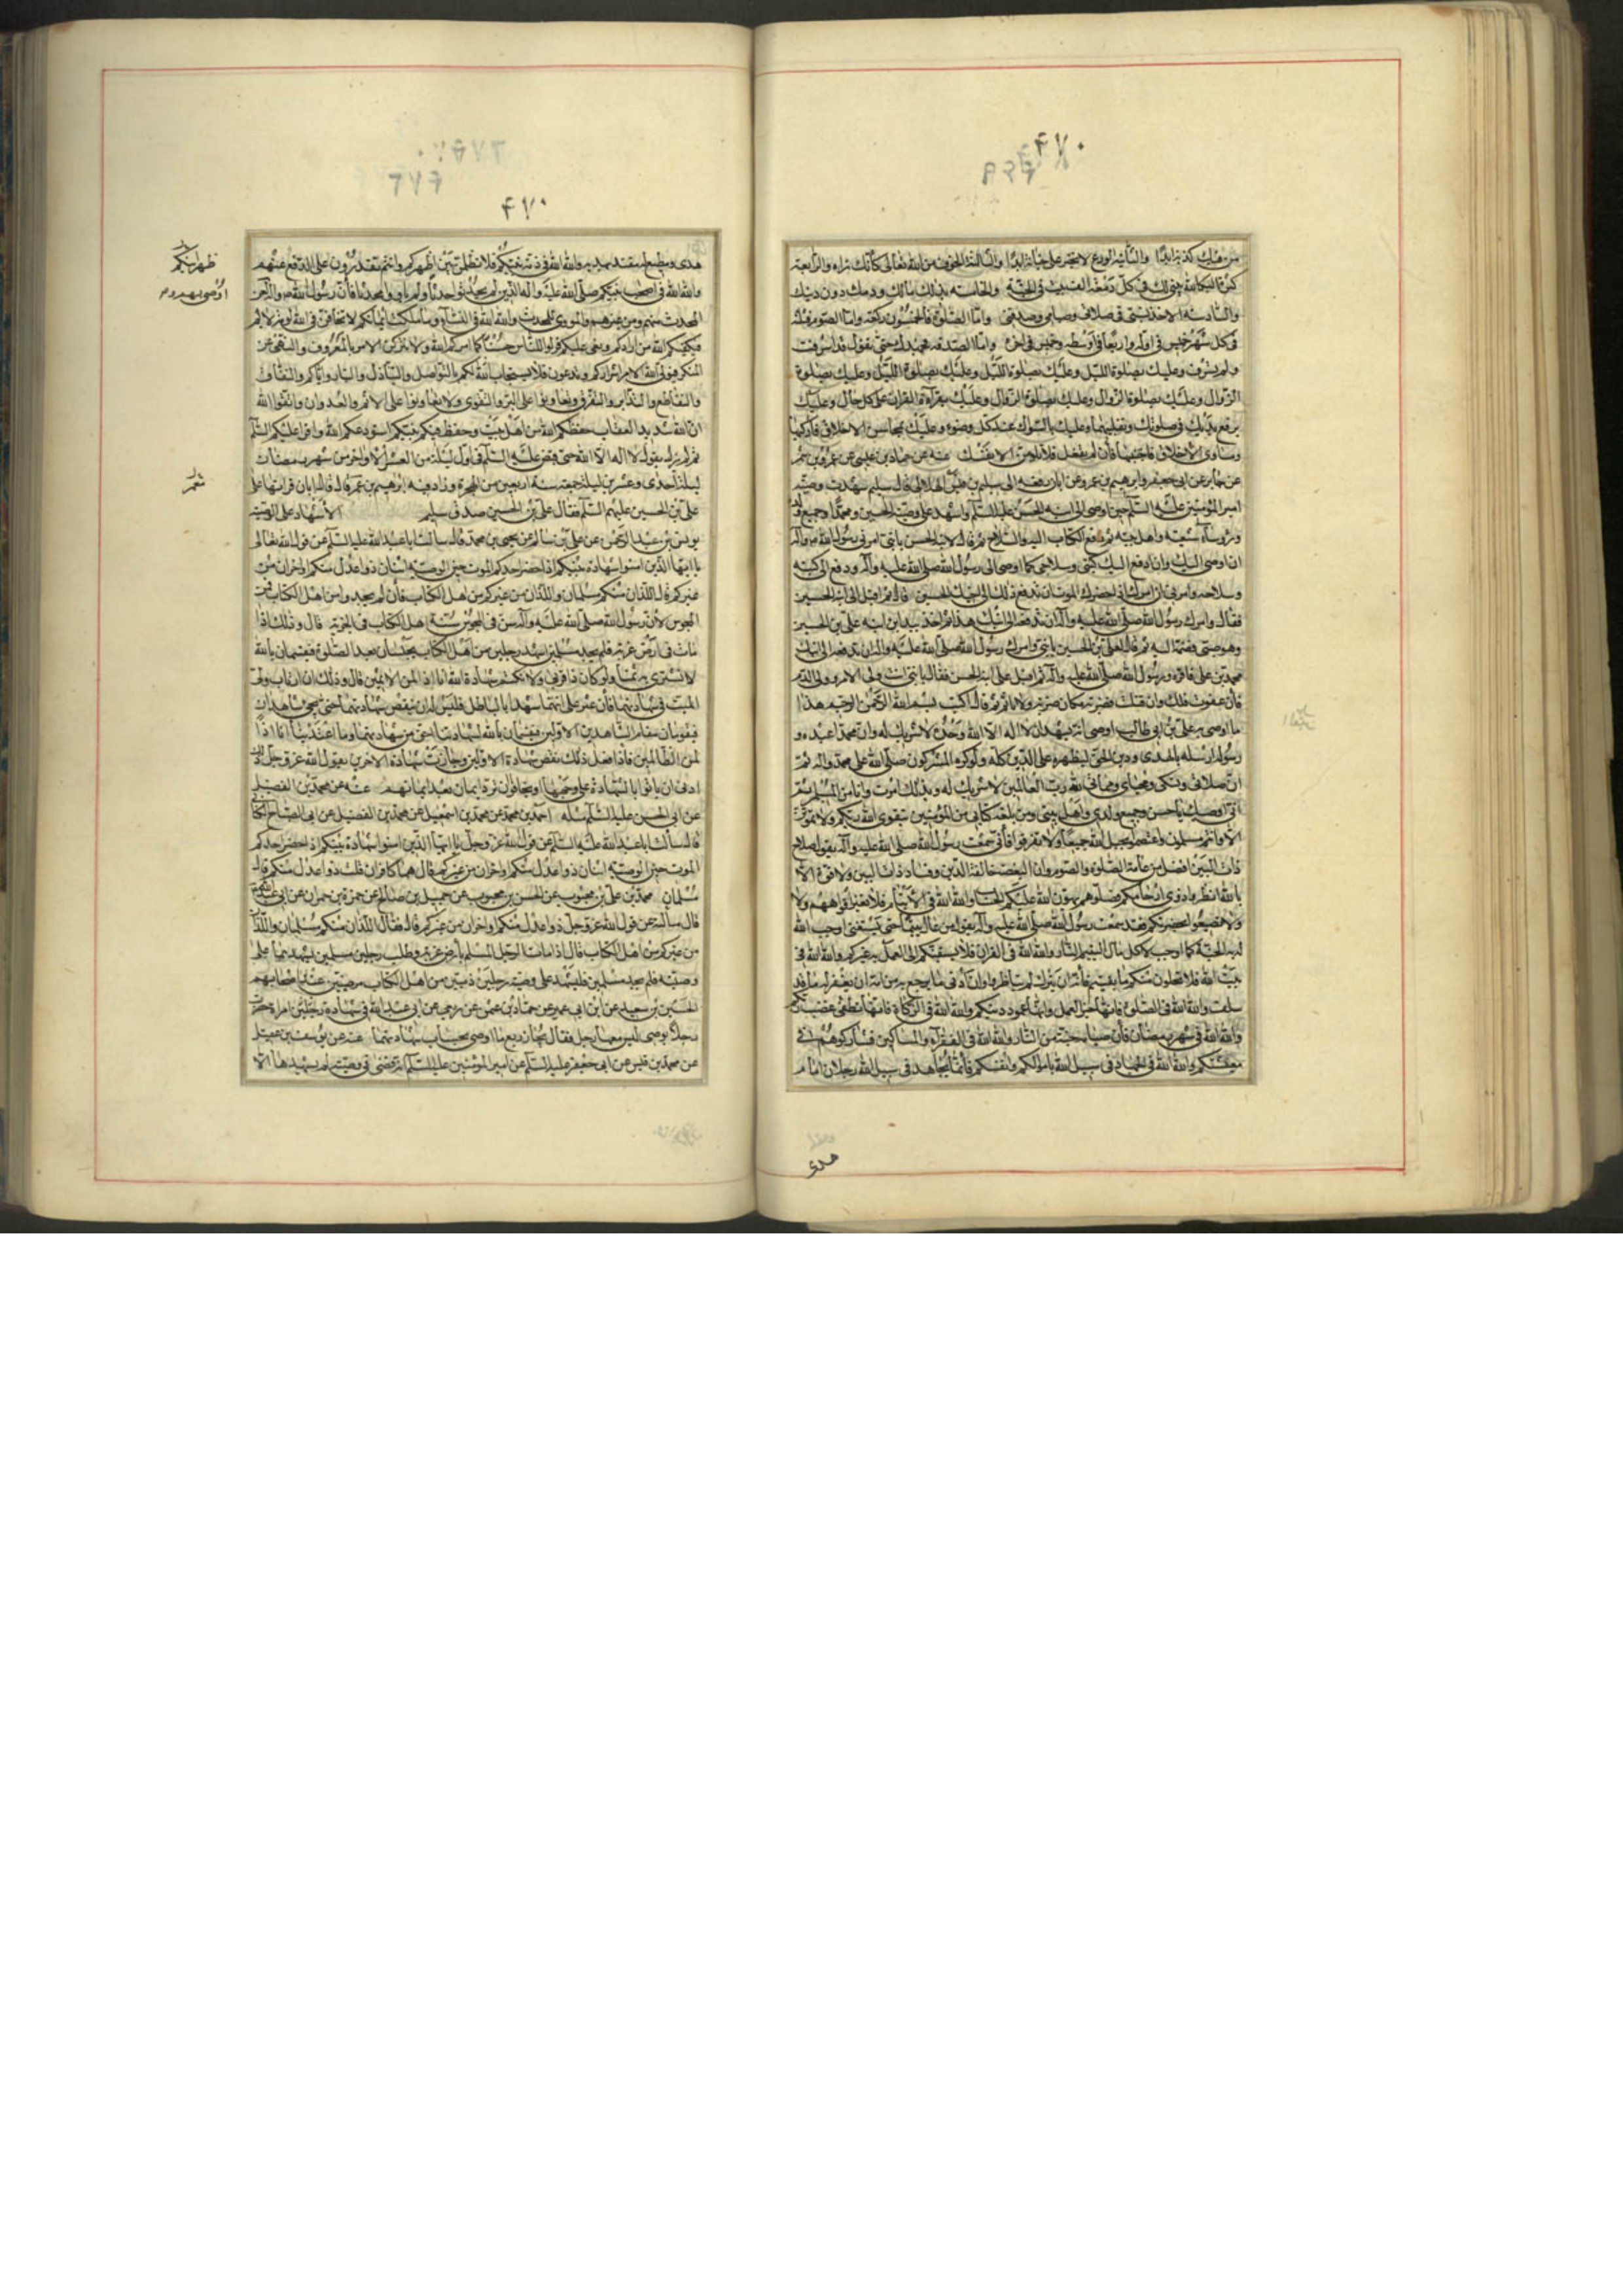 ۴۷۰
من فيك كذبة ابدا والثانية الورع لا تجتر على خيانة ابدا والثالثة الخوف من الله تعالى كانك تراه والرابعة
كثرة البكاء لله يبنى لك بكل دمعة الف بيت في الجنة والخامسة بذلك مالك ودمك دون دينك
والسادسة الاخذ بسنتي في صلاتي وصيامي وصدقتي واما الصلوة فالخمسون ركعة واما الصوم فثلثة
في كل شهر خميس في اوله واربعا في اوسطه وخميس في اخره واما الصدقة فجهدك حتى يقول قد اسرفت
ولم تسرف وعليك بصلوة الليل وعليك بصلوة الليل وعليك بصلوة الليل وعليك بصلوة
الزوال وعليك بصلوة الزوال وعليك بصلوة الزوال وعليك بقراءة القران على كل حال وعليك
برفع يديك في صلوتك وتقليبهما وعليك بالسواك عند كل وضوء وعليك بمحاسن الاخلاق فاركبها
ومساوي الاخلاق فاجتنبها فان لم تفعل فلا تلومن الا نفسك عنه عن حماد بن عيسى عن عمرو بن شمر
عن جابر عن ابي جعفر وابرهيم بن عمر عن ابان رفعه الى سليم بن قيس الهلالي قال سليم شهدت وصية
امير المؤمنين عليه السلم حين اوصى الى ابنه الحسن عليه السلم واشهد على وصيته الحسين ومحمدا وجميع ولده
ورؤساء شيعته واهل بيته ثم دفع الكتاب اليه والسلاح ثم قال لابنه الحسن يا بني امرني رسول الله ص وآله
ان اوصى اليك وان ادفع اليك كتبي وسلاحي كما اوصى الى رسول الله صلى الله عليه وآله ودفع الى كتبه
وسلاحه وامرني ان امرك اذا حضرك الموت ان تدفع ذلك الى اخيك الحسين قال ثم اقبل الى ابنه الحسين
فقال وامرك رسول الله صلى الله عليه وآله ان تدفعه الى ابنك هذا ثم اخذ بيد ابن ابنه علي بن الحسين
وهو صبي فضمه اليه ثم قال لعلي بن الحسين يا بني وامرك رسول الله صلى الله عليه وآله ان تدفعه الى ابنك
محمد بن علي فاقرءه من رسول الله صلى الله عليه وآله ثم اقبل على ابنه الحسن فقال يا بني انت ولي الامر وولي الدم
فان عفوت فلك وان قتلت فضربة مكان ضربة ولا تاثم ثم قال اكتب بسم الله الرحمن الرحيم هذا
ما اوصى به علي بن ابي طالب اوصى انه يشهد ان لا اله الا الله وحده لا شريك له وان محمدا عبده و
رسوله ارسله بالهدى ودين الحق ليظهره على الدين كله ولو كره المشركون صلى الله على محمد وآله ثم
ان صلاتي ونسكي ومحياي ومماتي لله رب العالمين لا شريك له وبذلك امرت وانا من المسلمين ثم
اني اوصيك يا حسن وجميع ولدي واهل بيتي ومن بلغه كتابي من المؤمنين بتقوى الله ربكم ولا تموتن
الا وانتم مسلمون واعتصموا بحبل الله جميعا ولا تفرقوا فاني سمعت رسول الله صلى الله عليه وآله يقول صلاح
ذات البين افضل من عامة الصلوة والصوم وان البغضة حالقة الدين وفساد ذات البين ولا قوة الا
بالله انظروا ذوي ارحامكم فصلوهم يهون الله عليكم الحساب والله الله في الايتام فلا تغيروا افواههم ولا
ولا تضيعوا بحضرتكم فقد سمعت رسول الله صلى الله عليه وآله يقول من عال يتيما حتى يستغني اوجب الله
له به الجنة كما اوجب لاكل مال اليتيم النار والله الله في القران فلا يسبقنكم الى العمل به غيركم والله الله في
بيت الله فلا تخلون منكم ما بقيتم فانه ان ترك لم تناظروا وان ادنى ما يرجع به من امه ان يغفر له ما قد
سلف والله الله في الصلوة فانها خير العمل وانها عمود دينكم والله الله في الزكاة فانها تطفئ غضب ربكم
والله الله في شهر رمضان فان صيامه جنة من النار والله الله في الفقراء والمساكين فشاركوهم في
معيشتكم والله الله في الجهاد في سبيل الله باموالكم وانفسكم فانما يجاهد في سبيل الله رجلان امام
هدى
۴۷۰
هدى ومطيع له مقتد بهديه والله الله في ذرية نبيكم فلا تظلمن بين اظهركم وانتم تقدرون على الدفع عنهم
والله الله في اصحاب نبيكم صلى الله عليه وآله الذين لم يحدثوا حدثا ولم يؤووا محدثا فان رسول الله ص وآله لعن
المحدث منهم ومن غيرهم والمؤوي للمحدث والله الله في النساء وما ملكت ايمانكم لا تخافن في الله لومة لائم
فيكفيكم الله من ارادكم وبغى عليكم قولوا للناس حسنا كما امركم الله ولا تتركن الامر بالمعروف والنهي عن
المنكر فيولي الله الامر اشراركم وتدعون فلا يستجاب لكم عليكم بالتواصل والتباذل والتبار واياكم والنفاق
والتقاطع والتدابر والتفرق وتعاونوا على البر والتقوى ولا تعاونوا على الاثم والعدوان واتقوا الله
ان الله شديد العقاب حفظكم الله من اهل بيت وحفظ فيكم نبيكم استودعكم الله واقرا عليكم السلم
ثم لم يزل يقول لا اله الا الله حتى قبض عليه السلم في اول ليلة من العشر الاواخر من شهر رمضان
ليلة احدى وعشرين ليلة جمعة سنة اربعين من الهجرة وزاد فيه ابرهيم بن عمر قال قال ابان قراتها على
علي بن الحسين عليهم السلم فقال علي بن الحسين صدق سليم الاشهاد على الوصية
يونس بن عبد الرحمن عن علي بن سالم عن يحيى بن محمد قال سالت ابا عبد الله عليه السلم عن قول الله تعالى
يا ايها الذين امنوا شهادة بينكم اذا حضر احدكم الموت حين الوصية اثنان ذوا عدل منكم او اخران من
غيركم قال اللذان منكم مسلمان واللذان من غيركم من اهل الكتاب فان لم يجدوا من اهل الكتاب فمن
المجوس لان رسول الله صلى الله عليه وآله سن في المجوس سنة اهل الكتاب في الجزية قال وذلك اذا
مات في ارض غربة فلم يجد مسلمين اشهد رجلين من اهل الكتاب يحبسان بعد الصلوة فيقسمان بالله
لا نشتري به ثمنا ولو كان ذا قربى ولا نكتم شهادة الله انا اذا لمن الاثمين قال وذلك ان ارتاب ولي
الميت في شهادتهما فان عثر على انهما شهدا بالباطل فليس له ان ينقض شهادتهما حتى يجئ بشاهدين
فيقومان مقام الشاهدين الاولين فيقسمان بالله لشهادتنا احق من شهادتهما وما اعتدينا انا اذا
لمن الظالمين فاذا فعل ذلك نقض شهادة الاولين وجازت شهادة الاخرين يقول الله عز وجل ذلك
ادنى ان ياتوا بالشهادة على وجهها او يخافوا ان ترد ايمان بعد ايمانهم عنه عن محمد بن الفضيل
عن ابي الحسن عليه السلم مثله احمد بن محمد عن محمد بن اسمعيل عن محمد بن الفضيل عن ابي الصباح الكناني
قال سالت ابا عبد الله عليه السلم عن قول الله عز وجل يا ايها الذين امنوا شهادة بينكم اذا حضر احدكم
الموت حين الوصية اثنان ذوا عدل منكم او اخران من غيركم قال هما كافران قلت ذوا عدل منكم قال
مسلمان محمد بن علي بن محبوب عن الحسن بن محبوب عن جميل بن صالح عن حمزة بن حمران عن ابي عبد الله
قال سالته عن قول الله عز وجل ذوا عدل منكم او اخران من غيركم قال فقال اللذان منكم مسلمان واللذان
من غيركم من اهل الكتاب قال اذا مات الرجل المسلم بارض غربة وطلب رجلين مسلمين يشهدهما على
وصيته فلم يجد مسلمين فليشهد على وصيته رجلين ذميين من اهل الكتاب مرضيين عند اصحابهم
الحسين بن سعيد عن ابن ابي عمير عن حماد بن عثمن عن ربعي عن ابي عبد الله في شهادة امراة حضرت
رجلا يوصي ليس معها رجل فقال يجاز ربع ما اوصى بحساب شهادتها عنه عن يوسف بن عقيل
عن محمد بن قيس عن ابي جعفر عليه السلم عن امير المؤمنين عليه السلم انه قضى في وصية لم يشهدها الا